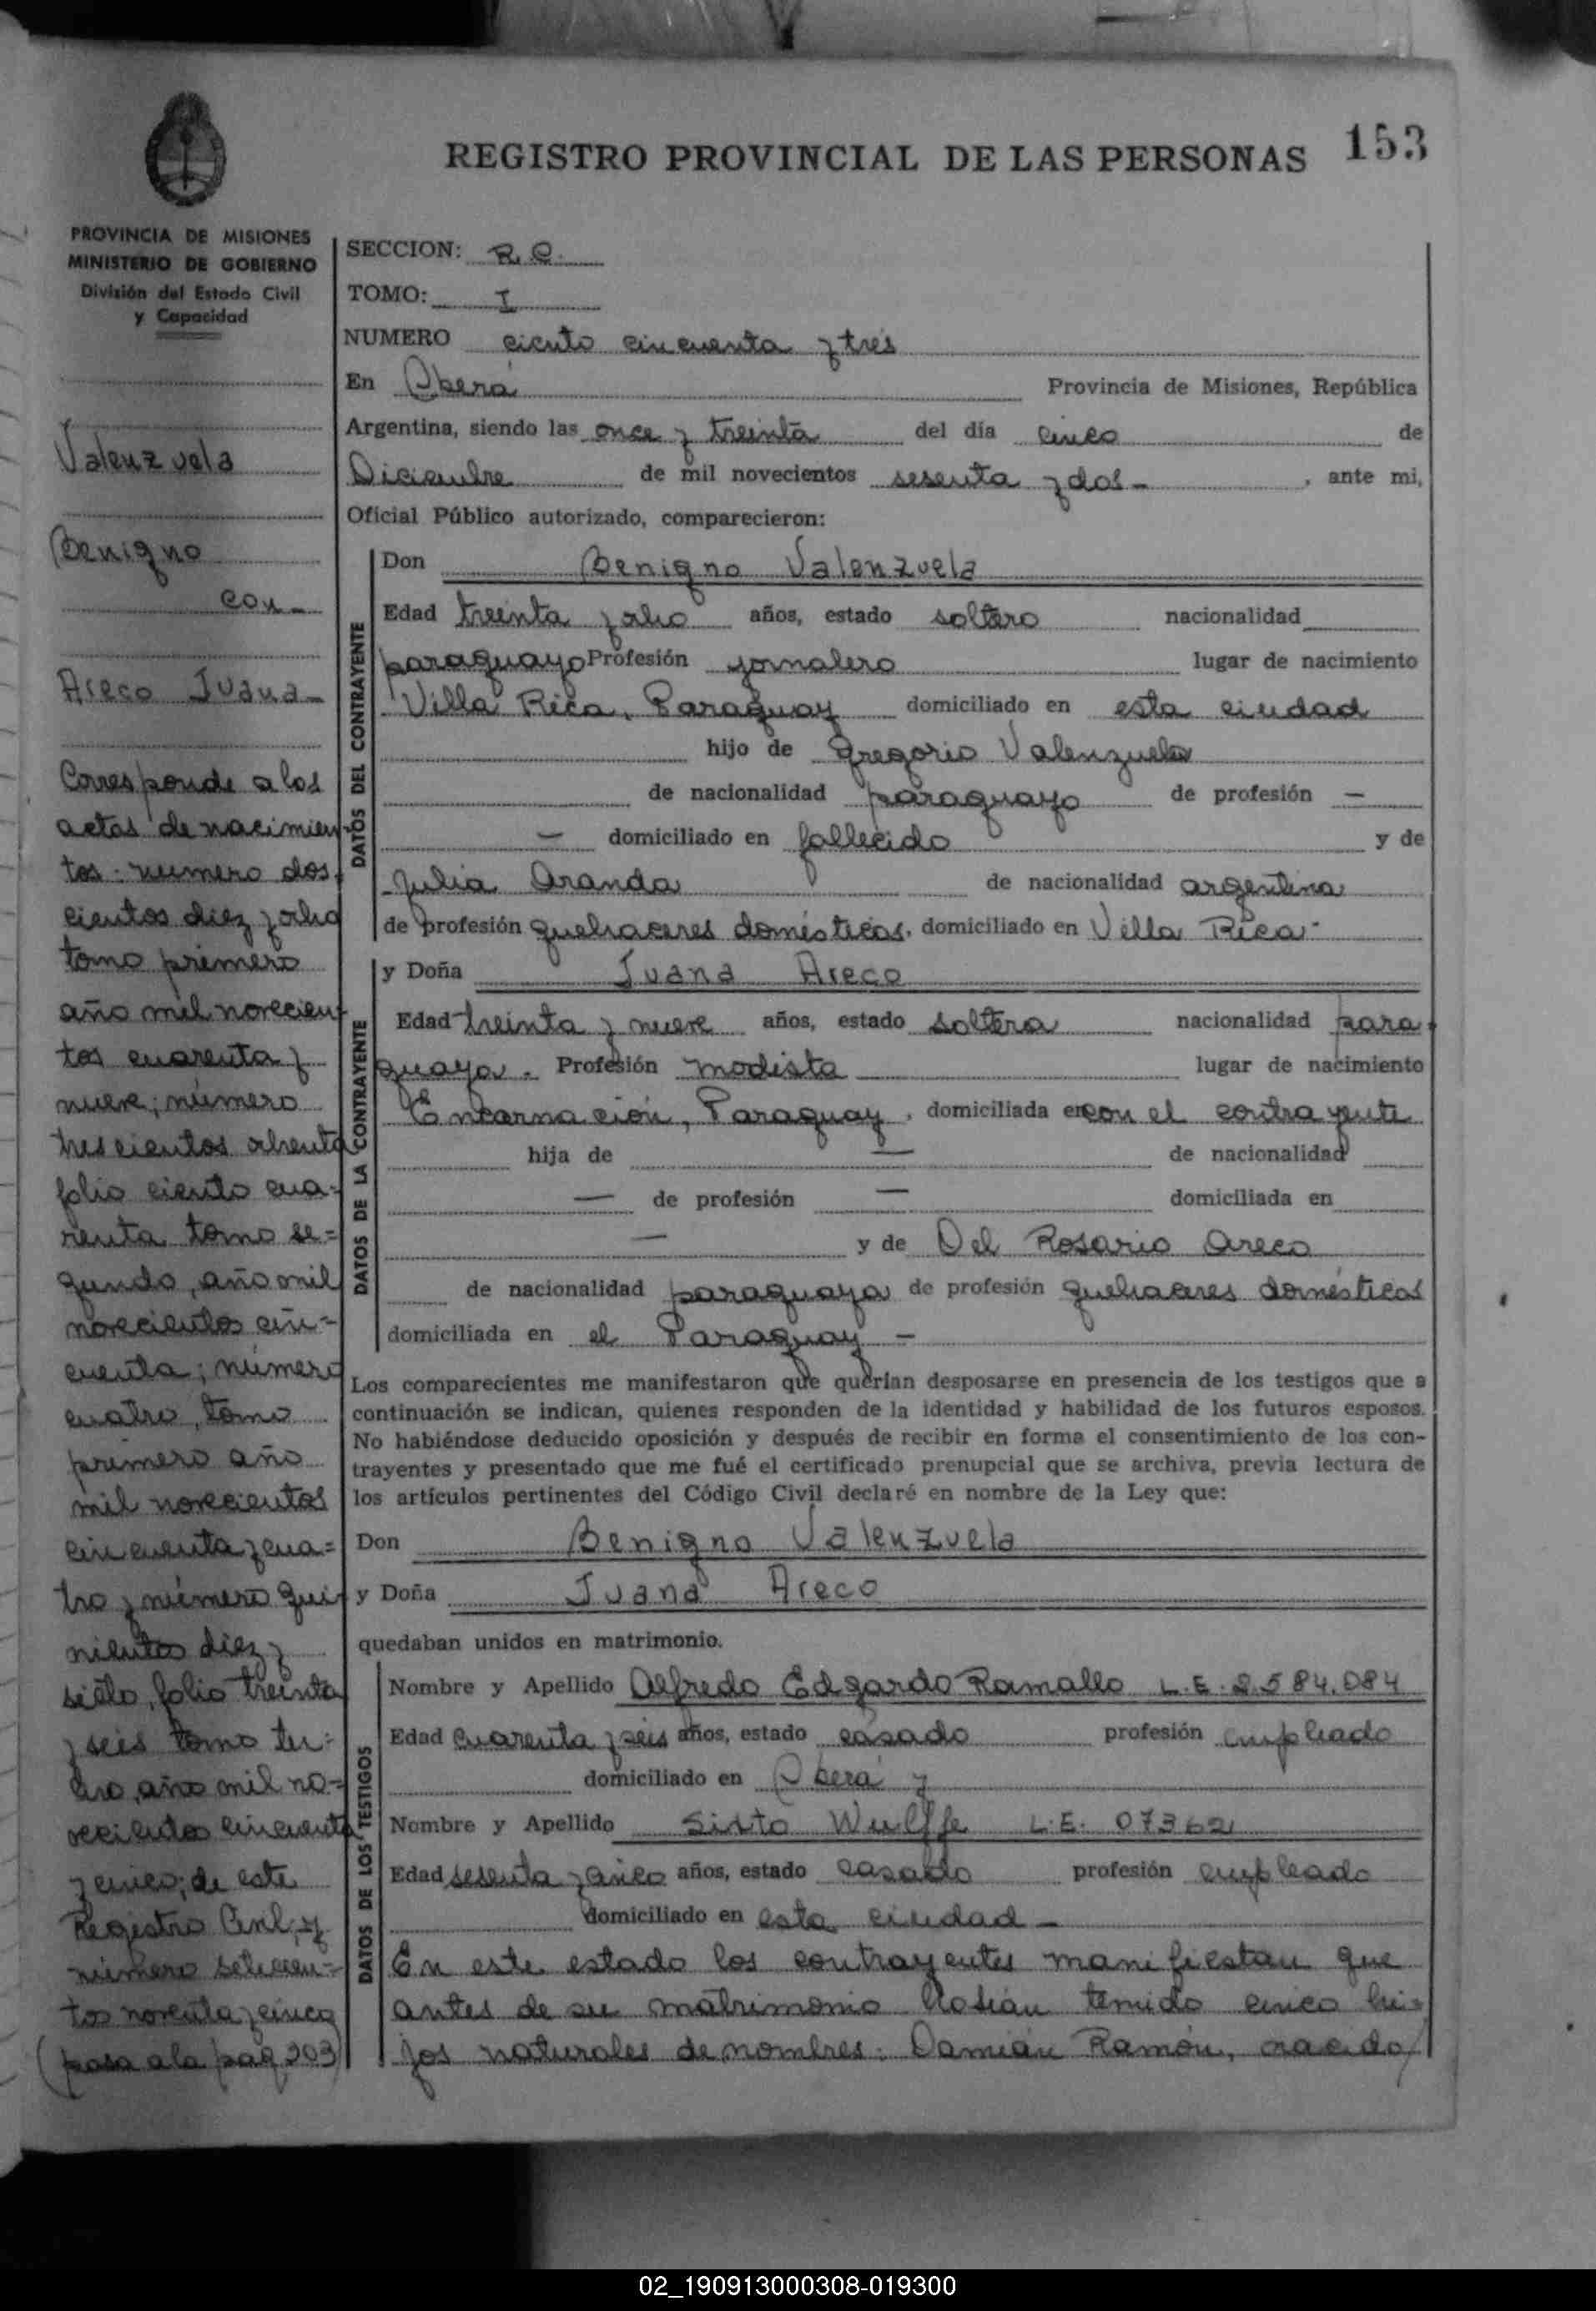 REGISTRO PROVINCIAL DE LAS PERSONAS 153
PROVINCIA DE MISIONES
MINISTERIO DE GOBIERNO
División del Estado Civil
y Capacidad
Valenzuela
Benigno
con-
Areco Juana-
Corresponde a los
actas de nacimien
tos: numero dos-
cientos diez y ocho
tomo primero
año mil novecien
tos cuarenta y
nueve; número
trescientos ochenta
folio ciento cua=
renta tomo se=
gundo, año mil
novecientos cin=
cuenta; número
cuatro, tomo
primero año
mil novecientos
cincuenta y cua=
tro y número qui
nientos diez y
siete, folio treinta
y seis tomo ter=
cero, año mil no=
vecientos cincuenta
y cinco; de este
Registro Civil; y
número setecien=
tos noventa y cinco
(pasa a la pag 203)
SECCION: R. C.
TOMO: I
NUMERO ciento cincuenta y tres
En Oberá Provincia de Misiones, República
Argentina, siendo las once y treinta del día cinco de
Diciembre de mil novecientos sesenta y dos- , ante mi,
Oficial Público autorizado, comparecieron:
DATOS DEL CONTRAYENTE
Don Benigno Valenzuela
Edad treinta y ocho años, estado soltero nacionalidad
paraguayo Profesión jornalero lugar de nacimiento
Villa Rica, Paraguay domiciliado en esta ciudad
hijo de Gregorio Valenzuela
de nacionalidad paraguayo de profesión —
— domiciliado en fallecido y de
Julia Aranda de nacionalidad argentina
de profesión quehaceres domésticos, domiciliado en Villa Rica-
DATOS DE LA CONTRAYENTE
y Doña Juana Areco
Edad treinta y nueve años, estado soltera nacionalidad para
guaya. Profesión modista lugar de nacimiento
Encarnación, Paraguay, domiciliada en con el contrayente
hija de — de nacionalidad
— de profesión — domiciliada en
— y de Del Rosario Areco
de nacionalidad paraguaya de profesión quehaceres domésticos
domiciliada en el Paraguay —
Los comparecientes me manifestaron que querían desposarse en presencia de los testigos que a
continuación se indican, quienes responden de la identidad y habilidad de los futuros esposos.
No habiéndose deducido oposición y después de recibir en forma el consentimiento de los con-
trayentes y presentado que me fué el certificado prenupcial que se archiva, previa lectura de
los artículos pertinentes del Código Civil declaré en nombre de la Ley que:
Don Benigno Valenzuela
y Doña Juana Areco
quedaban unidos en matrimonio.
DATOS DE LOS TESTIGOS
Nombre y Apellido Alfredo Edgardo Ramallo L.E. 2.584.084
Edad cuarenta y seis años, estado casado profesión empleado
domiciliado en Oberá y
Nombre y Apellido Sixto Wulffe L.E. 07362
Edad sesenta y cinco años, estado casado profesión empleado
domiciliado en esta ciudad -
En este estado los contrayentes manifiestan que
antes de su matrimonio habian tenido cinco hi=
jos naturales de nombres: Damián Ramón, nacido
02_190913000308-019300